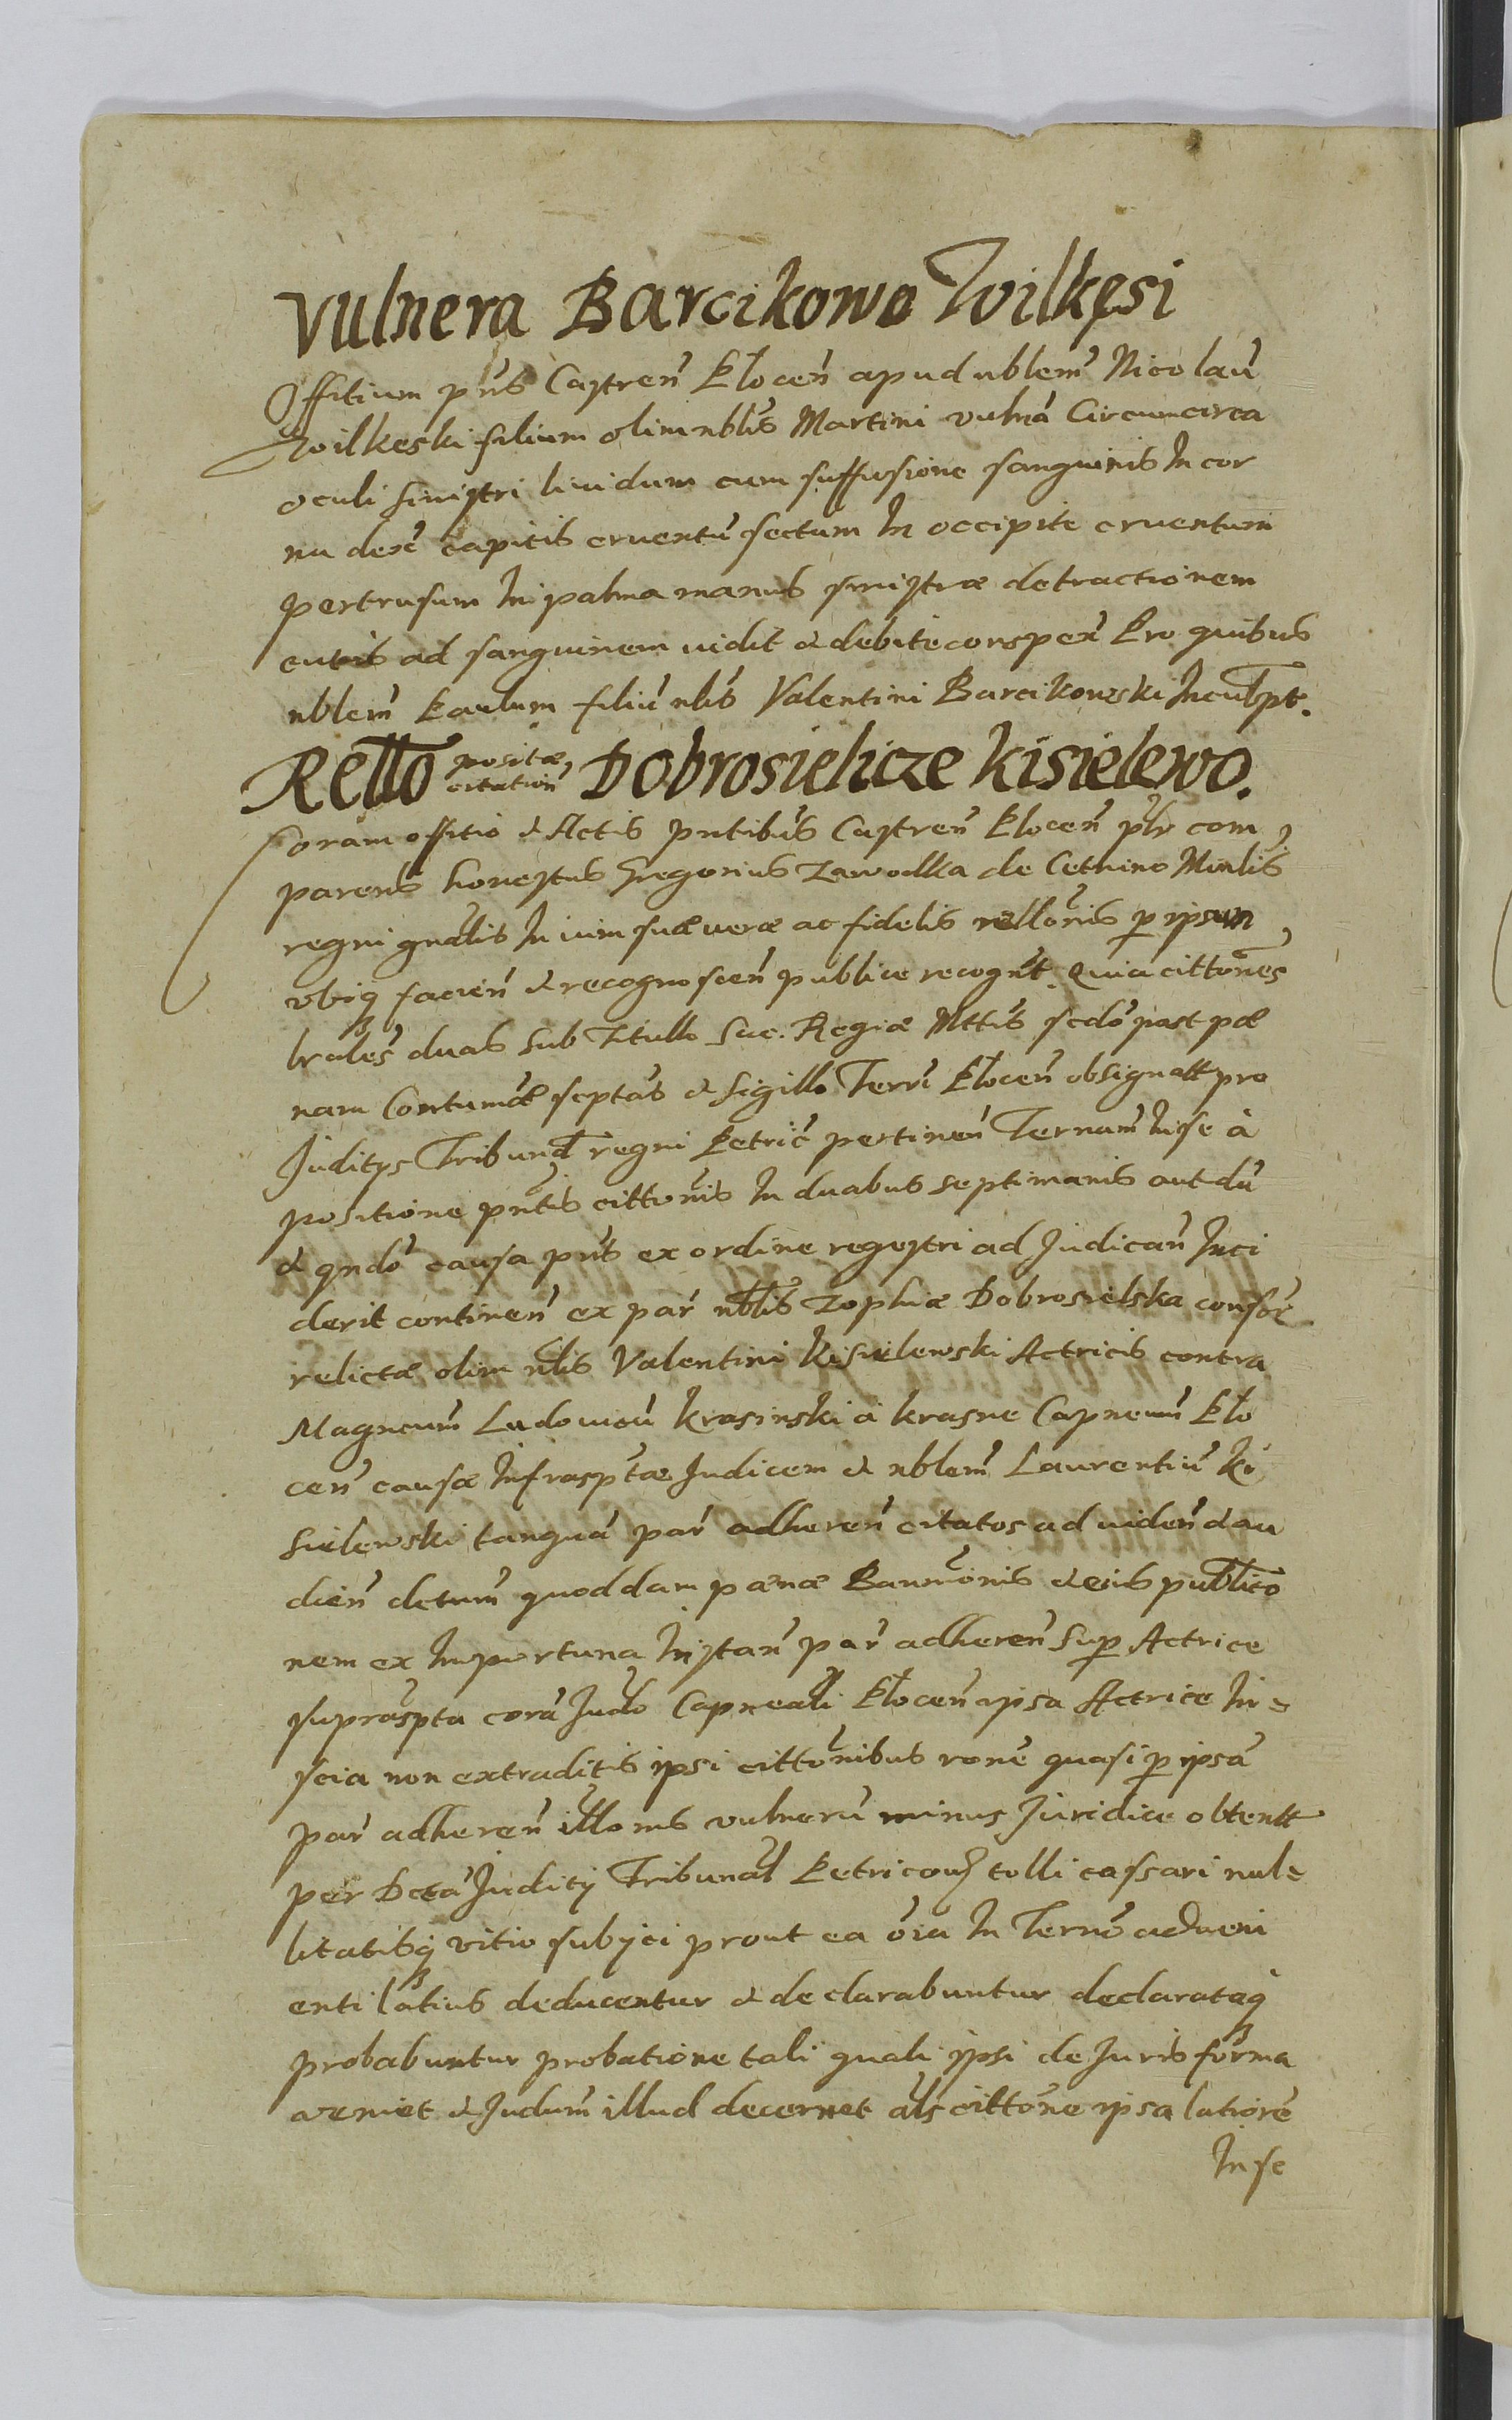 Vulnera Barcikowo Wilkęsi
Offitium pns̃ Castreñ Płoceñ apud nblem̃ Nicolaũ
Wilkęski filium olim nblis̃ Martini vulnã Circumcirca
oculi sinistri liuidum cum suffusione sanguinis In cor
nu dex̃ capitis cruentũ sectum In occipite cruentum
pertrusum In palma manus sinistræ detractionem
cutis ad sanguinem vidit & debite conspex̃ Pro quibus
nblem̃ Paulum filiũ nlis̃ Valentini Barcikowski Inculpt̃.
Rello positæ citation̄ Dobrosielicze Kisielewo.
Coram offitio & Actis pntibus̃ Castreñ Płoceñ plr̃ com
parens honestus Gregorius Zawodka de Cetnino Minlis̃
regni gnãlis In vim suæ veræ ac fidelis rellõnis p ipsum
vbiq facieñ & recognosceñ publice recognt̃. Quia cittõnes
brãles duas sub Titullo Sac. Regiæ Mttis̃ scdõ post pæ
nam Contumã sc̃ptas & sigillo Terr̃i Płoceñ obsignatt pro
Juditys Tribunał regni Petric̃ pertineñ Ternum̃ In se à
positione pntis̃ cittõnis In duabus septimanis aut dũ
& qndõ causa pns̃ ex ordine regestri ad Judicañ Inci
derit contineñ ex par̃ nblis̃ Zophiæ Dobrosielska consor̃
relictæ olim nlis̃ Valentini Kisielewski Actricis contra
Magncum̃ Ludouicũ Krasinski à Krasne Capneum̃ Pło
ceñ causæ Infrasp̃tæ Judicem & nblem̃ Laurentiũ Ki
sielewski tanquã par̃ adhereñ citatos ad videñ & au
dieñ detum̃ quoddam pænæ Bannõnis & eius publico
nem ex Importuna Instañ par̃ adhereñ sup Actrice
suprasp̃ta corã Judo Capneali Płoceñ ipsa Actrice In-
scia non extraditis ipsi cittõnibus ronẽ quasi p ipsã
par̃ adhereñ illoms̃ vulnerũ minus Juridice obtentt
per Dctã Judity Tribunał Petricoũ tolli cassari nul-
litatisq vitio subijci prout ea õia In Ternõ adueni
enti lãtius deducentur & declarabuntur declarataq
probabuntur probatione tali quali ipsi de Juris forma
veniet & Judum̃ illud decernet als̃ cittõne ipsa latiorẽ
In se